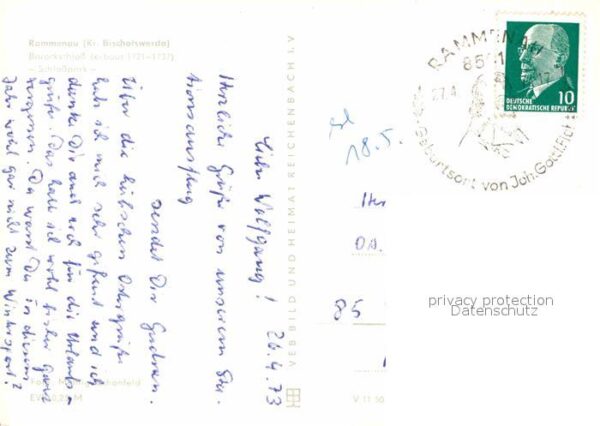 Rammenau (Kr. Bischofswerda)
Barockschloß (erbaut 1721–1737)
– Schloßpark –
26.4.73
Lieber Wolfgang!
Herzliche Grüße von unserem Stu-
tionsausflug
sendet Dir Gudrun.
Über die hübschen Ostergrüße
hab ich mich sehr gefreut und ich
danke Dir auch noch für die Urlaubs-
grüße. Das hatte ich wohl bisher ganz
vergessen. Da warst Du in diesem
Jahr wohl gar nicht zum Wintersport?
EVP 0,20 M
VEB BILD UND HEIMAT REICHENBACH I. V.
V 11 50
18.5.
85
RAMMENAU
8511
27.4.
Geburtsort von Joh. Gottl. Fich
DEUTSCHE
DEMOKRATISCHE REPUBLIK
10
privacy protection
Datenschutz